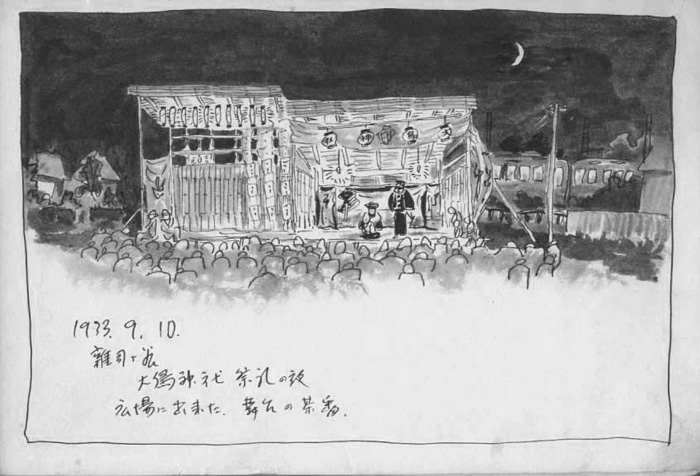 1933. 9. 10.
雑司ヶ谷
大鳥神社 祭礼の夜
広場に出来た、舞台の茶番、